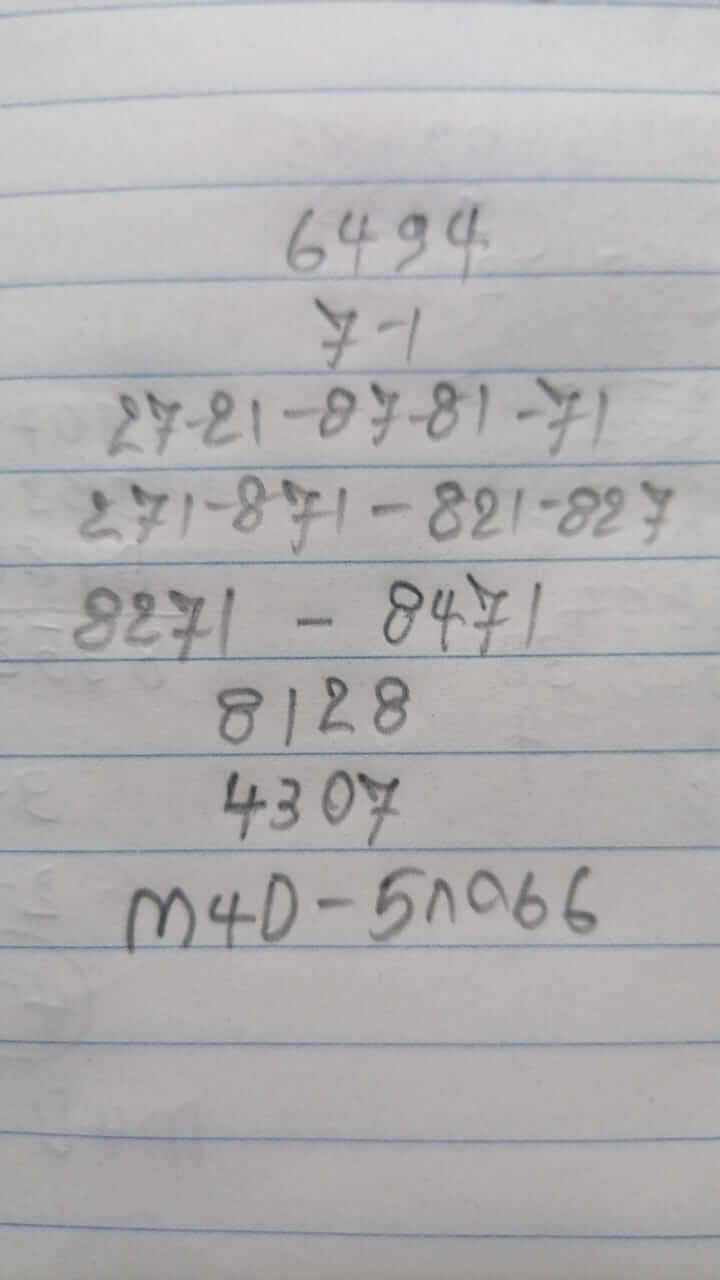 6494
7-1
27-21-87-81-71
271-871-821-827
8271 - 8471
8128
4307
M4D-5ก066